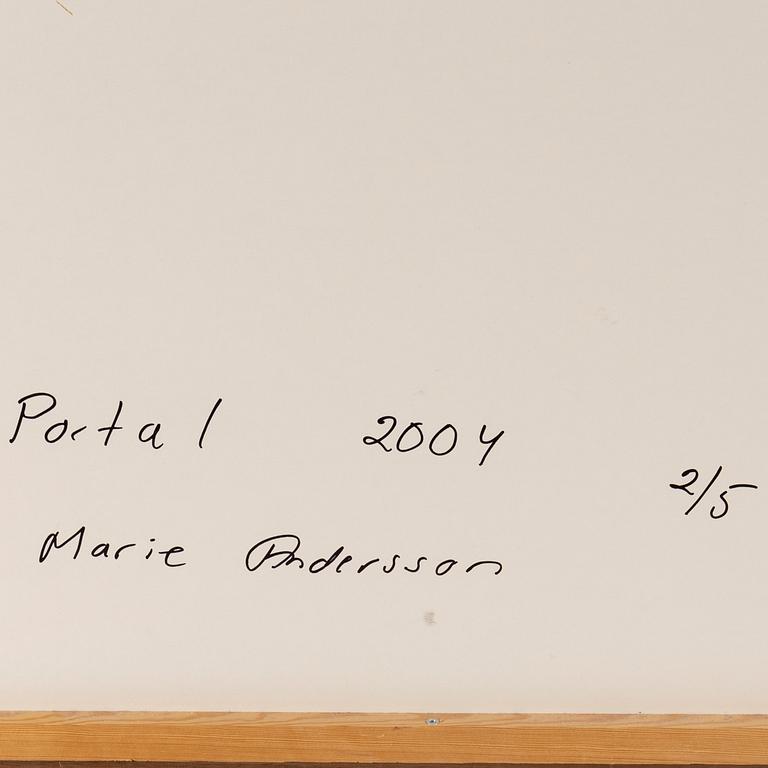 Portal 2004
2/5
Marie Andersson